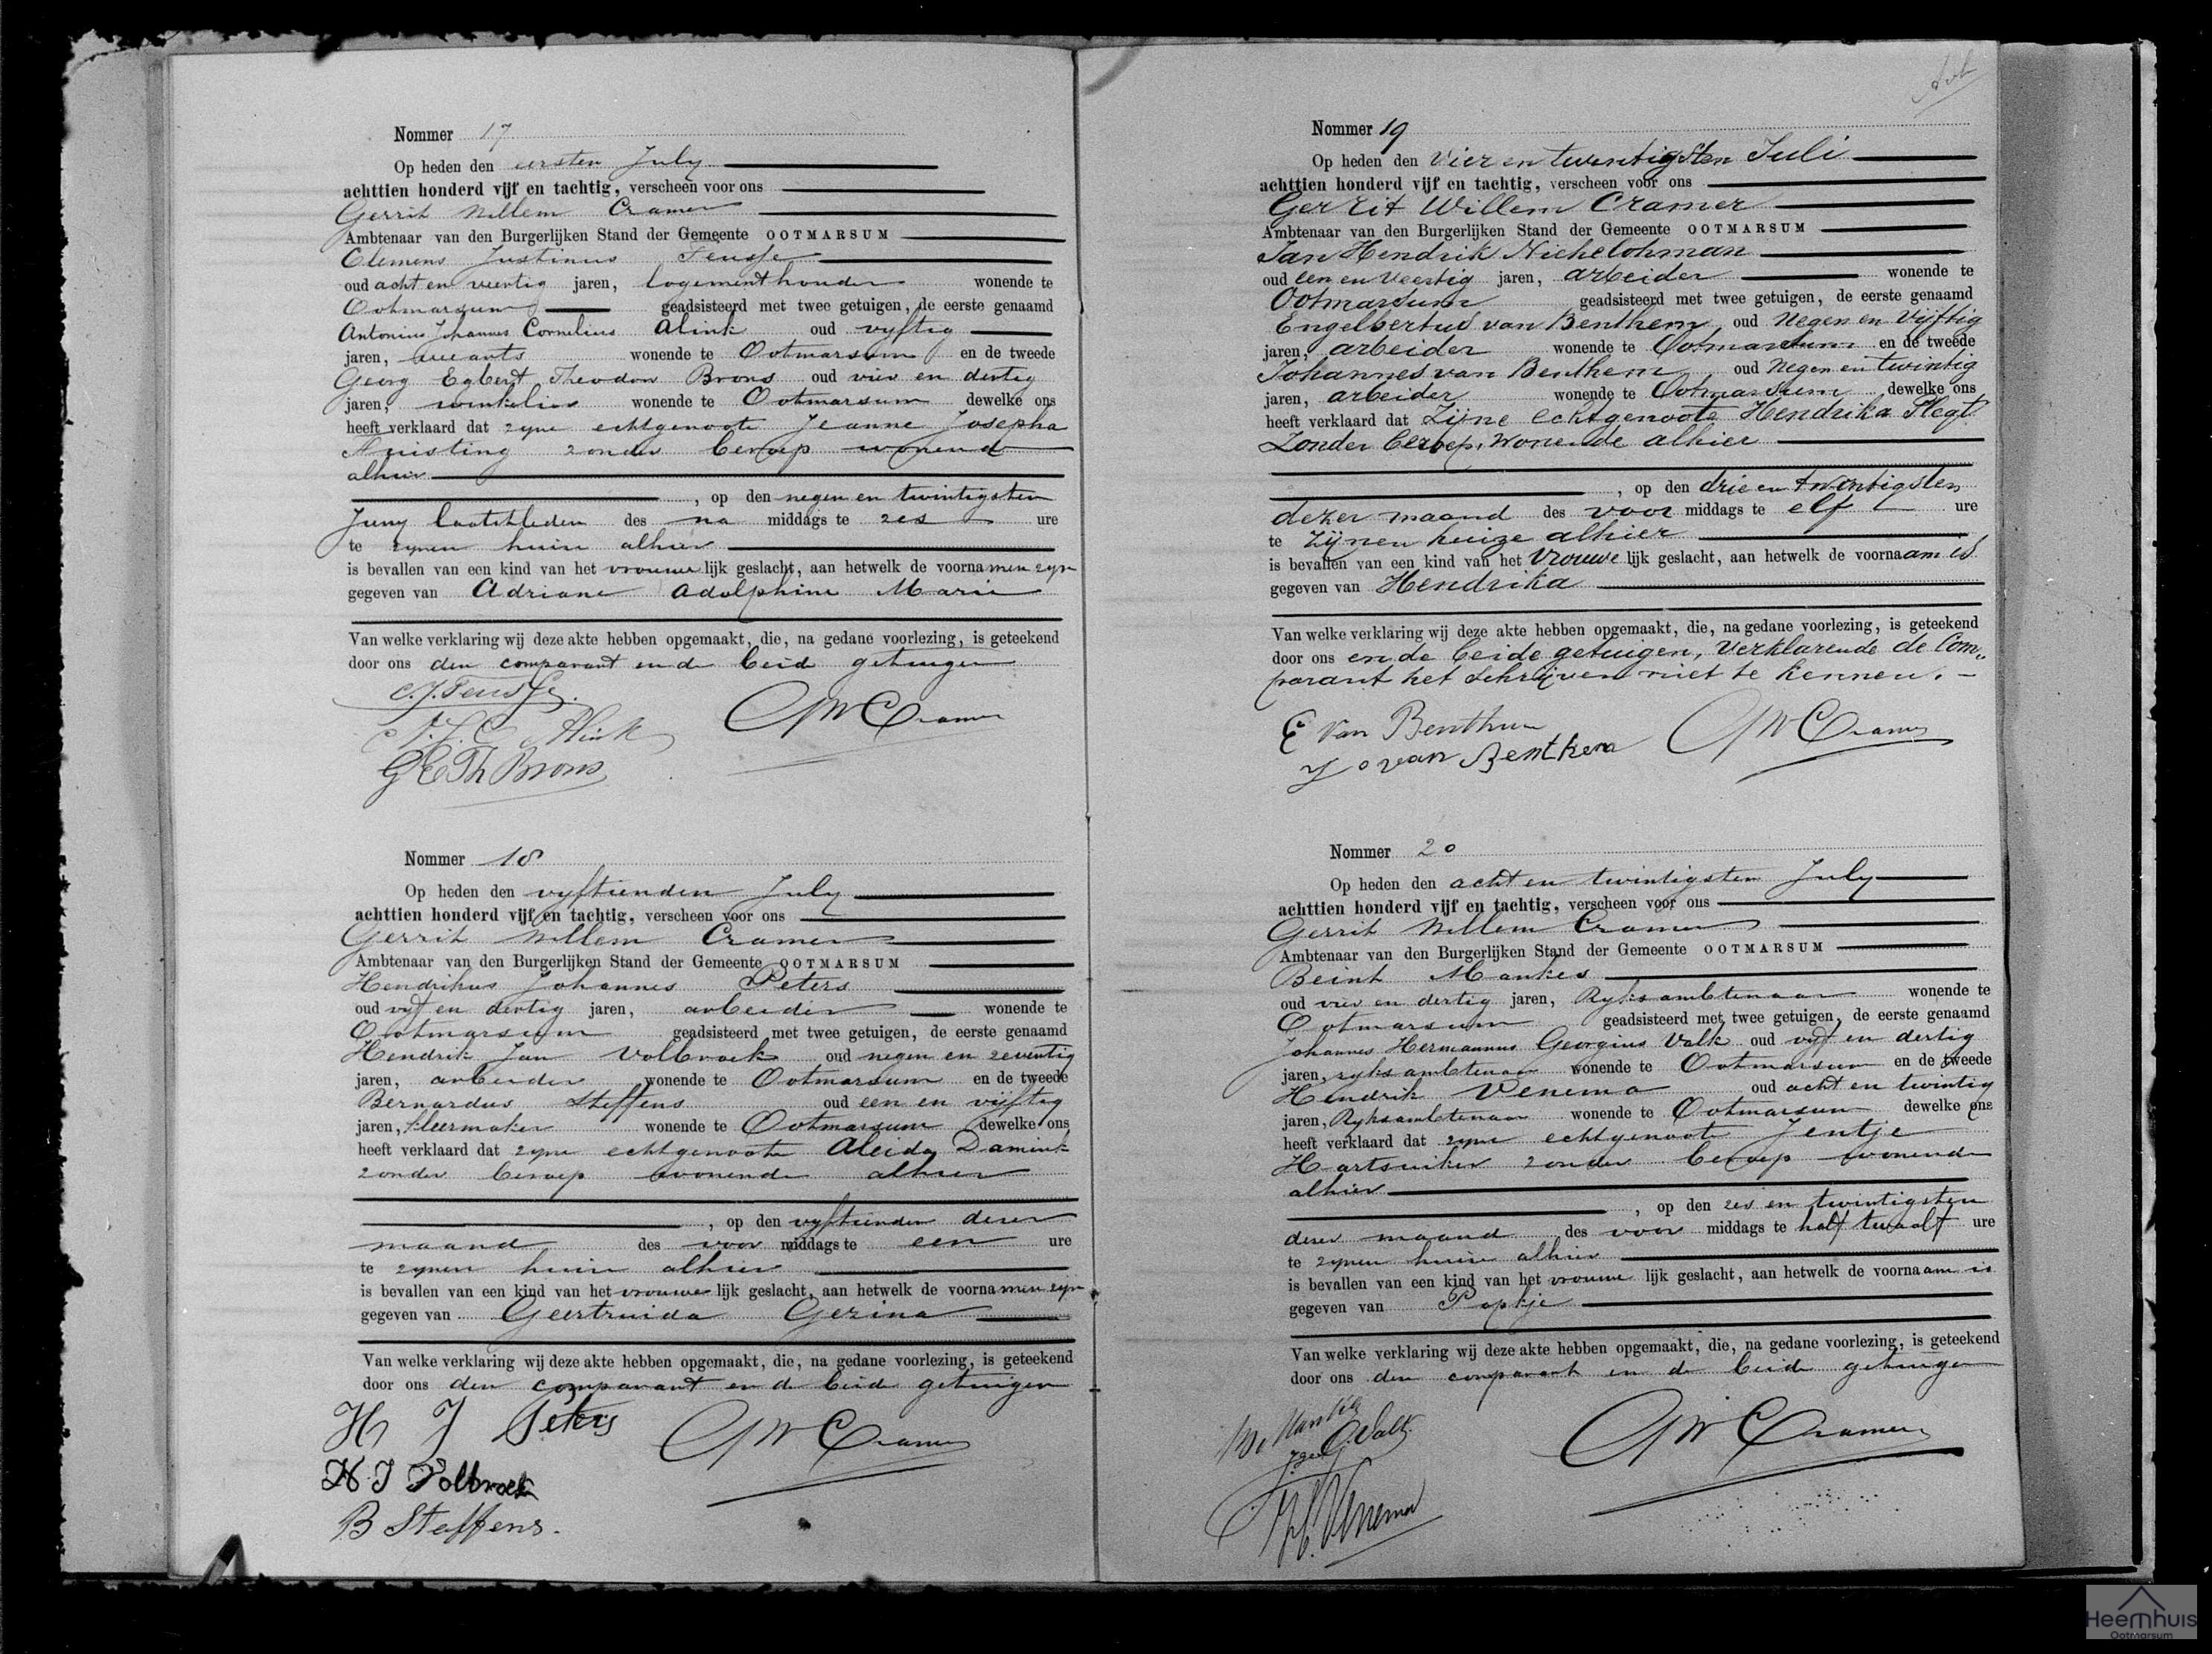 Nommer 17
Op heden den eersten July
achttien honderd vijf en tachtig, verscheen voor ons
Gerrit Willem Cramer
Ambtenaar van den Burgerlijken Stand der Gemeente OOTMARSUM
Clemens Justinus
oud acht en veertig jaren, logementhouder wonende te
Ootmarsum geadsisteerd met twee getuigen, de eerste genaamd
Antonius Johannes Cornelius Alink oud vyftig
jaren, wonende te Ootmarsum en de tweede
Georg Egbert Theodor Brons oud vier en dertig
jaren, winkelier wonende te Ootmarsum dewelke ons
heeft verklaard dat zyne echtgenoote Jeanne Josepha
zonder beroep wonende
alhier
, op den negen en twintigsten
Juny laatstleden des na middags te zes ure
te zynen huize alhier
is bevallen van een kind van het vrouwelijk geslacht, aan hetwelk de voornamen zyn
gegeven van Adriane Adolphine Marie
Van welke verklaring wij deze akte hebben opgemaakt, die, na gedane voorlezing, is geteekend
door ons den comparant en de beide getuigen
A.J.C. Alink GWCramer
GETh Brons
Nommer 18
Op heden den vyftienden July
achttien honderd vijf en tachtig, verscheen voor ons
Gerrit Willem Cramer
Ambtenaar van den Burgerlijken Stand der Gemeente OOTMARSUM
Hendrikus Johannes Peters
oud vyf en dertig jaren, arbeider wonende te
Ootmarsum geadsisteerd met twee getuigen, de eerste genaamd
Hendrik Jan Volbroek oud negen en zeventig
jaren, arbeider wonende te Ootmarsum en de tweede
Bernardus Steffens oud een en vijftig
jaren, kleermaker wonende te Ootmarsum dewelke ons
heeft verklaard dat zyne echtgenoote Aleida Damink
zonder beroep wonende alhier
, op den vyftienden dezer
maand des voor middags te een ure
te zynen huize alhier
is bevallen van een kind van het vrouwelijk geslacht, aan hetwelk de voornamen zyn
gegeven van Geertruida Gezina
Van welke verklaring wij deze akte hebben opgemaakt, die, na gedane voorlezing, is geteekend
door ons den comparant en de beide getuigen
H J Peters GWCramer
H.J Volbroek
B Steffens.
Nommer 19
Op heden den Vier en twentigsten Juli
achttien honderd vijf en tachtig, verscheen voor ons
Gerrit Willem Cramer
Ambtenaar van den Burgerlijken Stand der Gemeente OOTMARSUM
Jan Hendrik Nichelohman
oud een en Veertig jaren, arbeider wonende te
Ootmarsum geadsisteerd met twee getuigen, de eerste genaamd
Engelbertus van Benthem oud Negen en Vijftig
jaren, arbeider wonende te Ootmarsum en de tweede
Johannes van Benthem oud Negen en twintig
jaren, arbeider wonende te Ootmarsum dewelke ons
heeft verklaard dat Zijne echtgenoote Hendrika Slegt
Zonder beroep, Wonende alhier
, op den drie en twintigsten
dezer maand des voor middags te elf ure
te Zijnen huize alhier
is bevallen van een kind van het Vrouwelijk geslacht, aan hetwelk de voornaam is
gegeven van Hendrika
Van welke verklaring wij deze akte hebben opgemaakt, die, na gedane voorlezing, is geteekend
door ons en de beide getuigen, Verklarende de Com„
parant het Schrijven niet te kennen.
E van Benthem GWCramer
J van Benthem
Nommer 20
Op heden den acht en twintigsten July
achttien honderd vijf en tachtig, verscheen voor ons
Gerrit Willem Cramer
Ambtenaar van den Burgerlijken Stand der Gemeente OOTMARSUM
Beint Mankes
oud vier en dertig jaren, Ryksambtenaar wonende te
Ootmarsum geadsisteerd met twee getuigen, de eerste genaamd
Johannes Hermannus Georgius Valk oud vyf en dertig
jaren, ryksambtenaar wonende te Ootmarsum en de tweede
Hendrik Venema oud acht en twintig
jaren, Ryksambtenaar wonende te Ootmarsum dewelke ons
heeft verklaard dat zyne echtgenoote Jentje
Hartsuiker zonder beroep wonende
alhier
, op den zes en twintigsten
dezer maand des voor middags te half twaalf ure
te zynen huize alhier
is bevallen van een kind van het vrouwelijk geslacht, aan hetwelk de voornaam is
gegeven van Popkje
Van welke verklaring wij deze akte hebben opgemaakt, die, na gedane voorlezing, is geteekend
door ons den comparant en de beide getuigen
B. Mankes GWCramer
Valk
H. Venema
Heemhuis
Ootmarsum